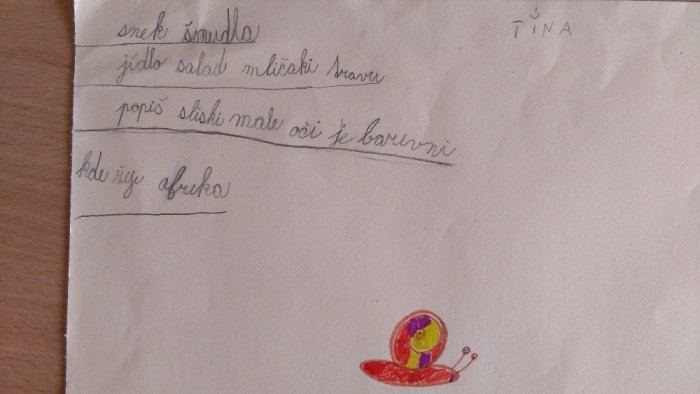 TINA
snek šmudla
jídlo salad mličaki travu
popiš sliski male oči je barevni
kde žije afrika